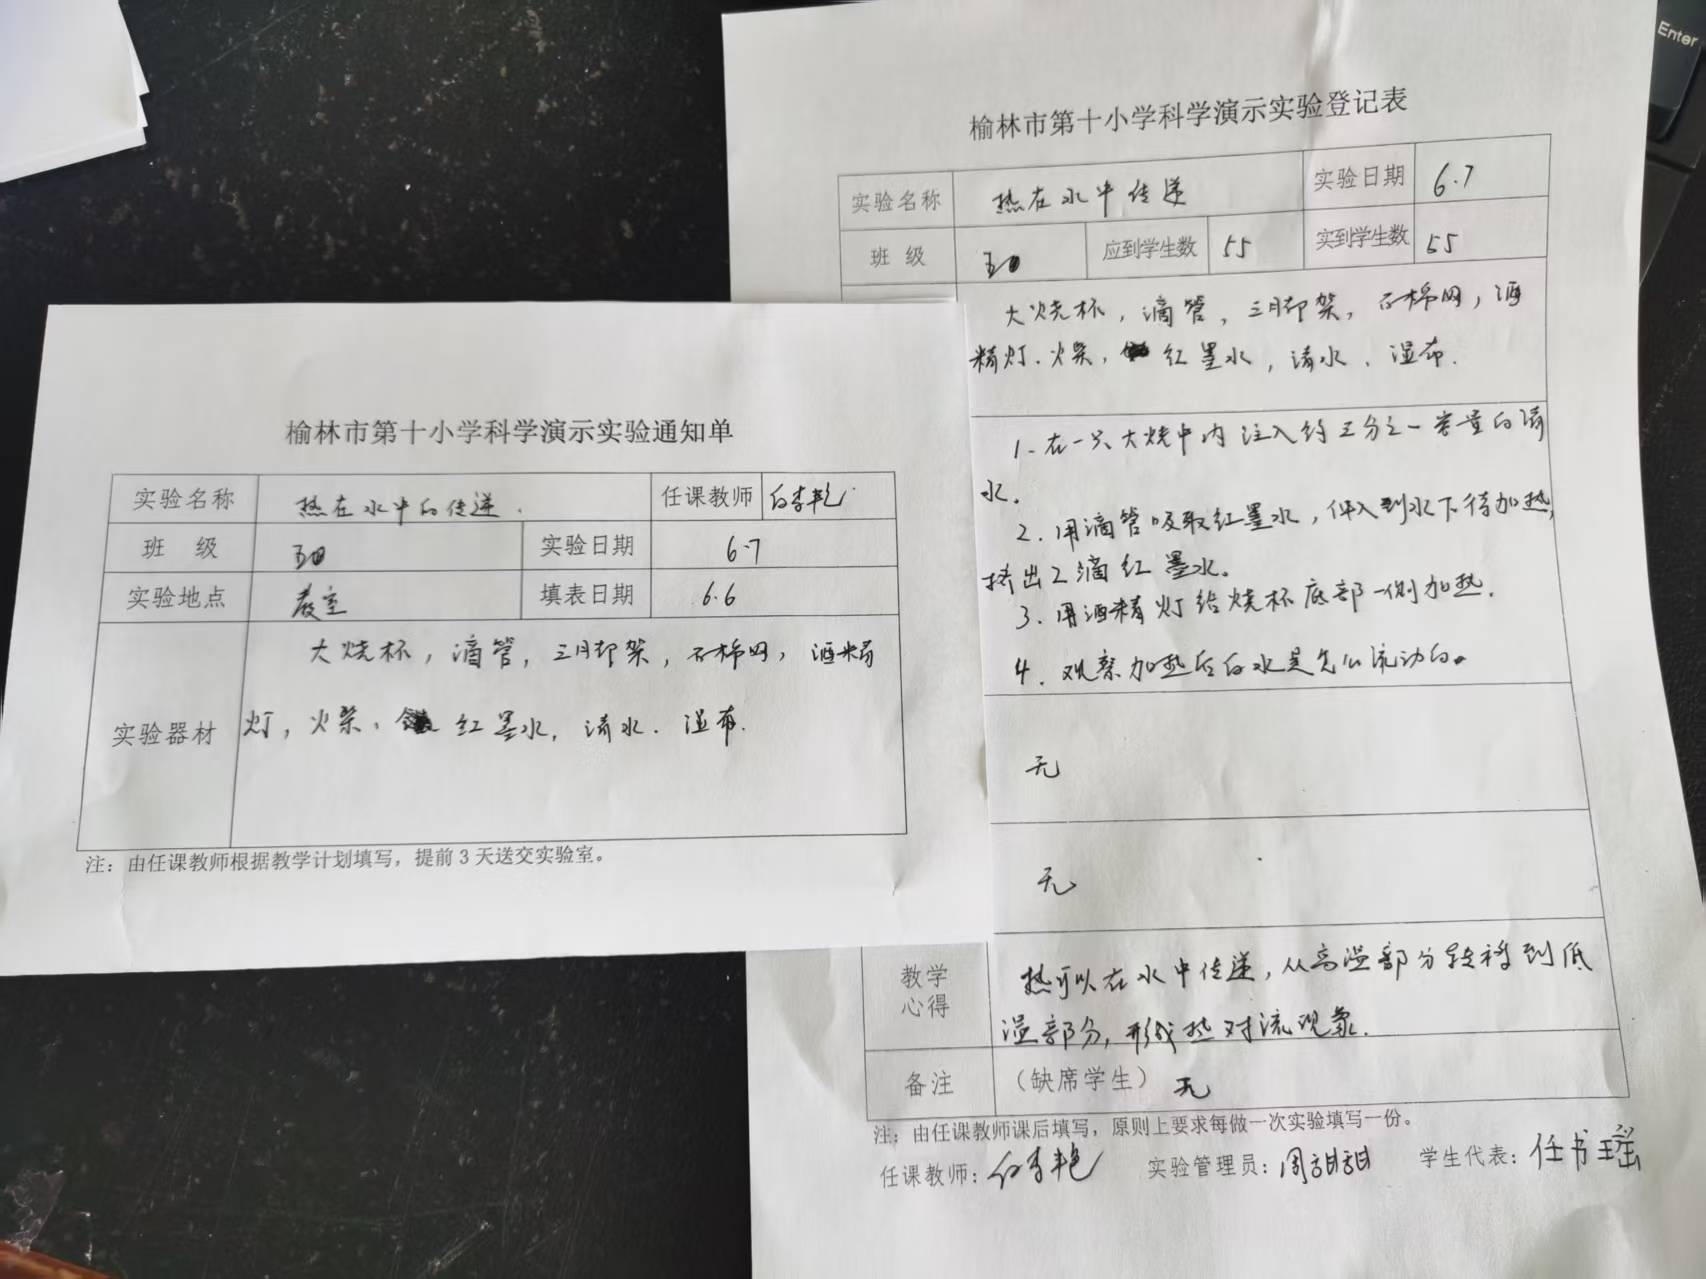 榆林市第十小学科学演示实验通知单
实验名称 热在水中的传递. 任课教师
班 级 实验日期 6.7
实验地点 教室 填表日期 6.6
大烧杯，滴管，三脚架，石棉网，酒精
实验器材 灯，火柴、红墨水，清水.湿布.
注：由任课教师根据教学计划填写，提前3天送交实验室。
榆林市第十小学科学演示实验登记表
实验名称 热在水中传递 实验日期 6.7
班 级 应到学生数 55 实到学生数 55
大烧杯，滴管，三脚架，石棉网，酒
精灯.火柴，红墨水，清水、湿布.
1.在一只大烧中内注入约三分之一容量的清
水.
2.用滴管吸取红墨水，伸入到水下待加热,
挤出2滴红墨水。
3.用酒精灯给烧杯底部一侧加热.
4.观察加热后的水是怎么流动的。
无
无
教学 热可以在水中传递，从高温部分转移到低
心得 温部分，形成热对流现象.
备注 （缺席学生） 无
注：由任课教师课后填写，原则上要求每做一次实验填写一份。
任课教师： 实验管理员：周甜甜 学生代表：任书瑶
Enter